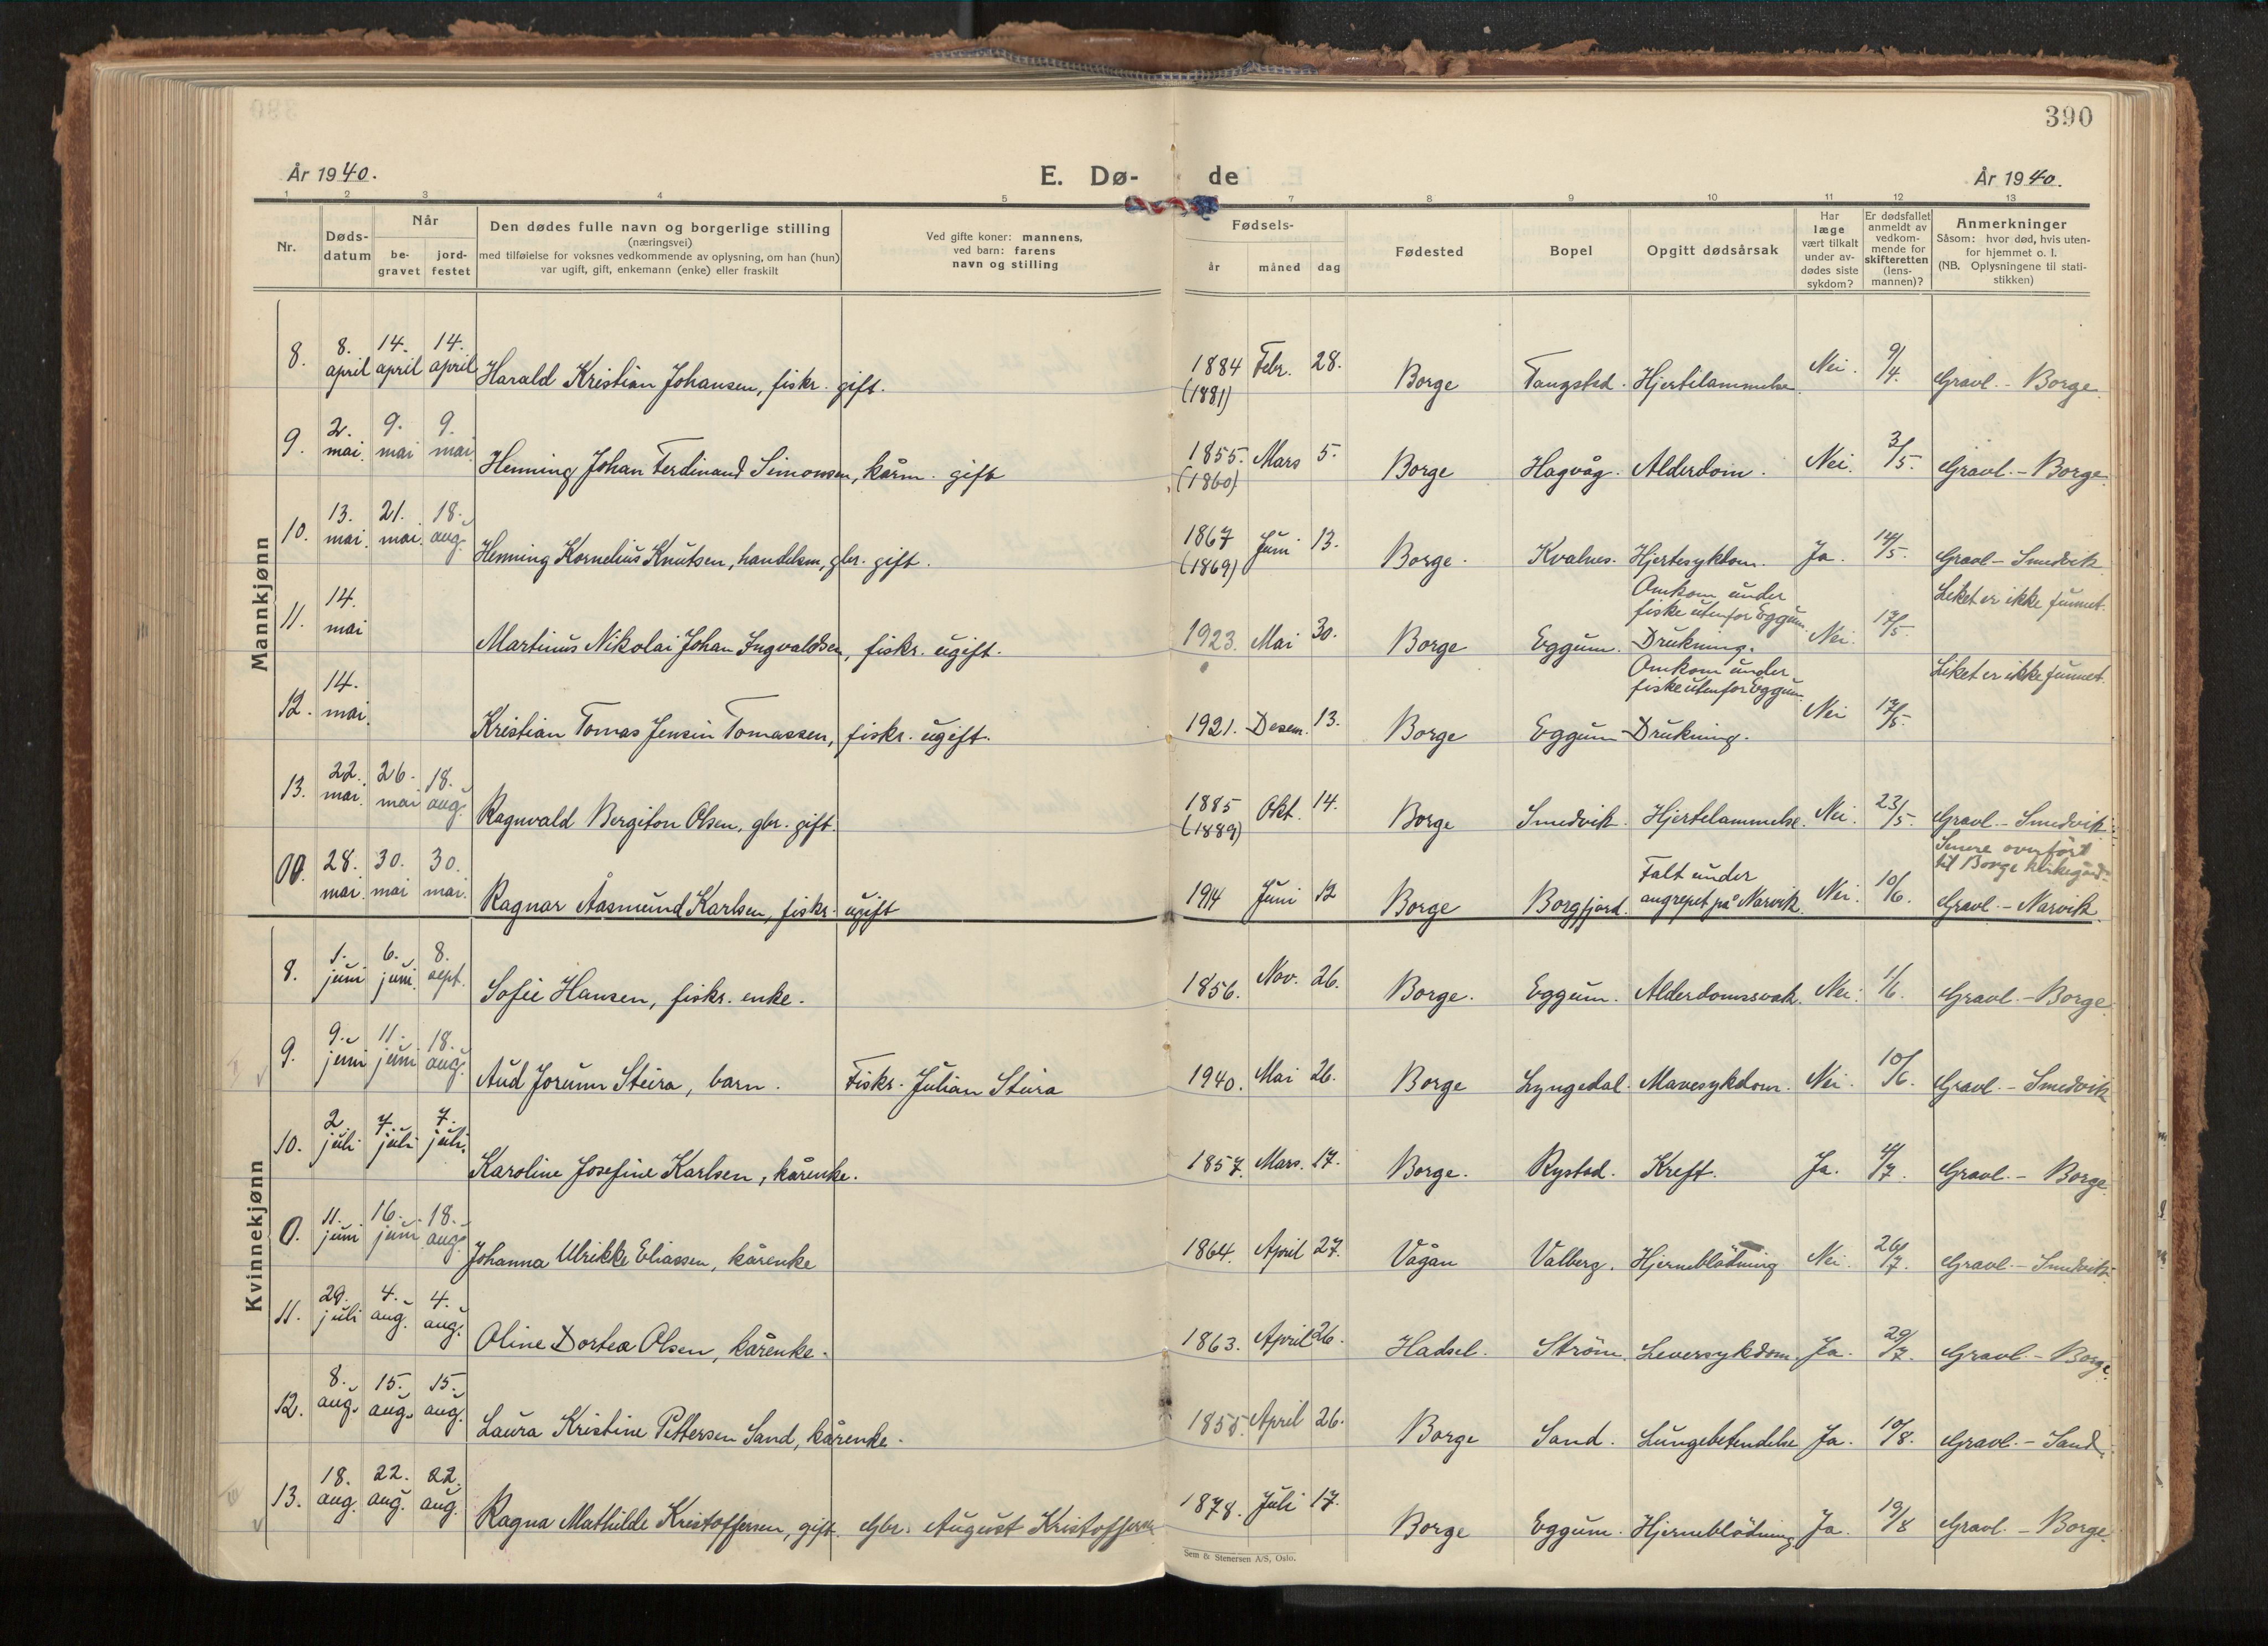 390
År 1940.
E. Dø- de
År 1940.
1 2 3 4 5 7 8 9 10 11 12 13
Nr.
Døds-
datum
Når
be-
gravet
jord-
festet
Den dødes fulle navn og borgerlige stilling
(næringsvei)
med tilføielse for voksnes vedkommende av oplysning, om han (hun)
var ugift, gift, enkemann (enke) eller fraskilt
Ved gifte koner: mannens,
ved barn: farens
navn og stilling
Fødsels-
år måned dag
Fødested
Bopel
Opgitt dødsårsak
Har
læge
vært tilkalt
under av-
dødes siste
sykdom?
Er dødsfallet
anmeldt av
vedkom-
mende for
skifteretten
(lens-
mannen)?
Anmerkninger
Såsom: hvor død, hvis uten-
for hjemmet o. l.
(NB. Oplysningene til stati-
stikken)
Mannkjønn
8. 8. april 14. april 14. april Harald Kristian Johansen, fiskr. gift. 1884 Febr. 28. Borge Tangstad. Hjertelammelse. Nei. 9/4. Gravl. - Borge.
(1881)
9. 2. mai. 9. mai 9. mai Henning Johan Ferdinand Simonsen, kårm. gift 1855. Mars 5. Borge Hagvåg. Alderdom. Nei. 3/5. Gravl. - Borge.
(1860)
10. 13. mai. 21. mai. 18. aug. Henning Kornelius Knutsen, handelsm, gbr. gift. 1867 Juni 13. Borge. Kvalnes. Hjertesykdom. Ja. 14/5. Gravl - Smedvik
(1869)
Omkom under
fiske utenfor Eggum.
Liket er ikke funnet.
11. 14. mai Martinus Nikolai Johan Ingvaldsen, fiskr. ugift. 1923. Mai 30. Borge Eggum. Drukning. Nei. 17/5.
Omkom under
fiske utenfor Eggum.
Liket er ikke funnet.
12. 14. mai. Kristian Tomas Jensin Tomassen, fiskr. ugift. 1921. Desem. 13. Borge Eggum Drukning. Nei 17/5.
13. 22. mai. 26. mai 18. aug. Ragnvald Bergiton Olsen, gbr. gift. 1885 Okt. 14. Borge Smedvik. Hjertelammelse. Nei. 23/5. Gravl. - Smedvik
(1889)
Senere overført
til Borge kirkegård.
Falt under
00. 28. mai 30. mai 30. mai. Ragnar Åasmund Karlsen, fiskr. ugift 1914 Juni 12 Borge Borgfjord. angrepet på Narvik. Nei. 10/6. Gravl. - Narvik.
Kvinnekjønn
8. 1. juni 6. juni. 8. sept. Sofie Hansen, fiskr. enke. 1856. Nov. 26. Borge. Eggum. Alderdomssvak. Nei. 1/6. Gravl. - Borge
9. 9. juni 11. juni 18. aug. Aud Jorunn Steira, barn. Fiskr. Julian Steira 1940. Mai 26. Borge Lyngedal. Mavesykdom. Nei. 10/6. Gravl. - Smedvik
10. 2. juli 7. juli 7. juli. Karoline Josefine Karlsen, kårenke. 1857. Mars. 17. Borge. Rystad. Kreft. Ja. 4/7. Gravl. - Borge
0. 11. juni 16. juni 18. aug. Johanna Ulrikke Eliassen, kårenke 1864. April 27. Vågan Valberg. Hjerneblødning Nei. 26/7. Gravl. - Smedvik.
11. 29. juli 4. aug. 4. aug. Oline Dortea Olsen, kårenke. 1863. April 26. Hadsel. Strøm. Leversykdom. Ja. 29/7. Gravl. - Borge.
12. 8. aug. 15. aug. 15. aug. Laura Kristine Pettersen Sand, kårenke. 1855. April 26. Borge Sand. Lungebetendelse Ja. 10/8. Gravl. - Sand.
13. 18. aug. 22. aug. 22. aug. Ragna Mathilde Kristoffersen, gift. Gbr. August Kristoffersen 1878. Juli 17. Borge Eggum. Hjerneblødning Ja. 19/8 Gravl. - Borge.
Sem & Stenersen A/S, Oslo.